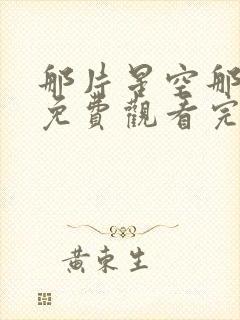 那片星空那
免費觀看完
黃東生